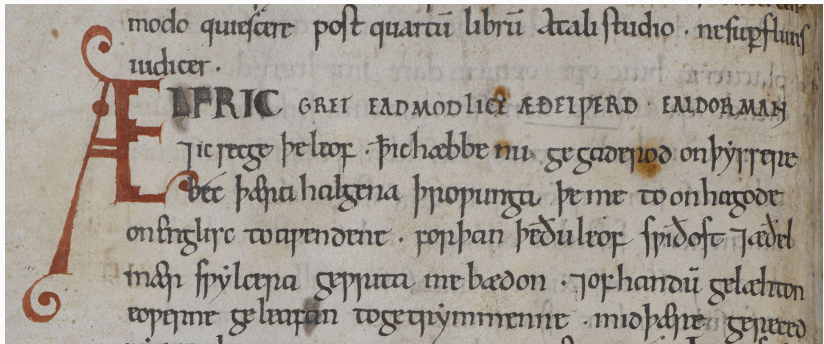 modo quiescere post quartū librū A tali studio · ne suꝑfluus
iudicer ·
ÆLFRIC GRET EADMODLICE ÆÐELǷERD · EALDORMAN
⁊ ic secge þe leof · ꝥ ic hæbbe nu gegaderod on þyssere
bec þæra halgena þroƿunga þe me to onhagode
on englisc to aƿendene · forþan þe ðu leof sƿiðost ⁊ æðel
mær sƿylcera geƿrita me bædon · ⁊ of handū gelæhton
eoƿerne geleafan to getrymmenne · mid þære gerecced